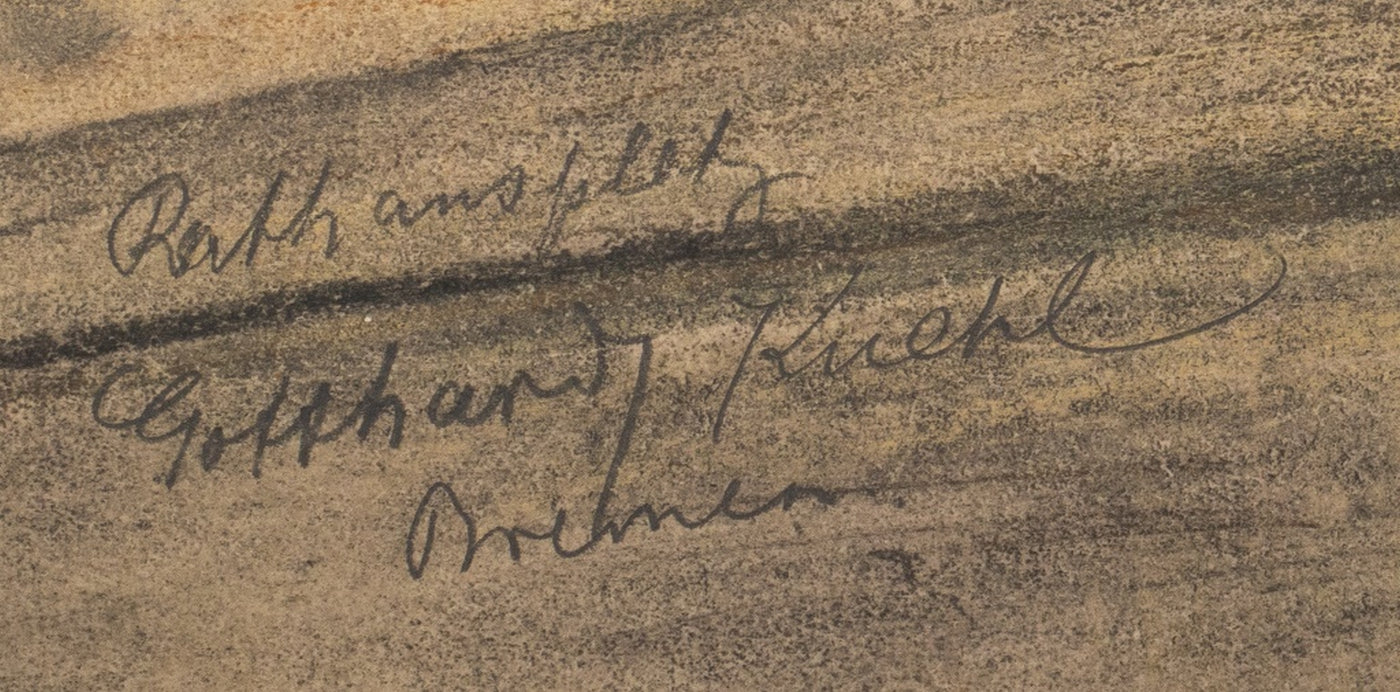 Rathausplatz
Gotthardt Kuehl
Bremen